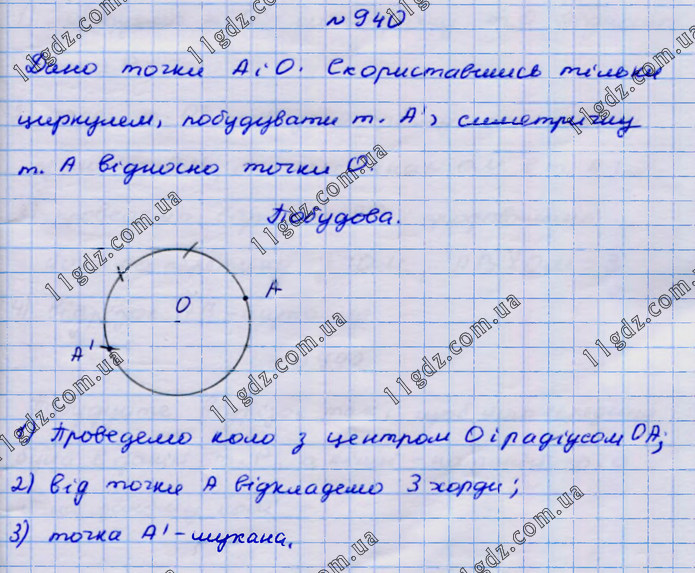 № 940
Дано точки А і О. Скориставшись тільки
циркулем, побудувати т. А', симетричну
т. А відносно точки О.
Побудова.
О
А
А'
1) Проведемо коло з центром О і радіусом ОА;
2) від точки А відкладемо 3 хорди;
3) точка А' - шукана.
11gdz.com.ua